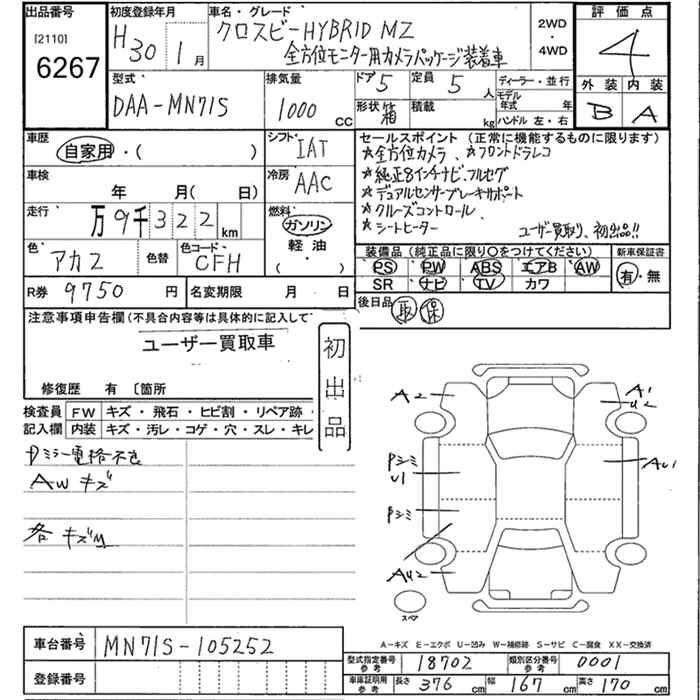 出品番号
[2110]
6267
初度登録年月
H30 1月
車名・グレード
クロスビーHYBRID MZ
全方位モニター用カメラパッケージ装着車
2WD
・
4WD
評価点
4
外装 内装
B A
型式
DAA-MN71S
排気量
1000 CC
ドア 5
定員 5 人
形状 箱
積載 kg
ディーラー・並行
モデル年式 年
ハンドル 左・右
車歴
自家用・( )
シフト
IAT
車検
年 月( 日)
冷房
AAC
走行
万9千322 km
燃料
ガソリン
軽油
( )
色
アカ2
色替
色コード
CFH
R券 9750 円
名変期限 月 日
セールスポイント (正常に機能するものに限ります)
☆全方位カメラ、☆フロントドラレコ
☆純正8インチナビ、フルセグ
☆デュアルセンサーブレーキサポート
☆クルーズコントロール
☆シートヒーター
ユーザー買取り、初出品!!
装備品(純正品に限り〇をつけてください)
PS PW ABS エアB AW
SR ナビ TV カワ
新車保証書
有・無
後日品 取 保
注意事項申告欄(不具合内容等は具体的に記入して
ユーザー買取車
修復歴 有 〔箇所
初出品
検査員記入欄
FW キズ・飛石・ヒビ割・リペア跡・
内装 キズ・汚レ・コゲ・穴・スレ・キレ
AW キズ
各 キズM
A2
A1
U2
Pシミ
U1
AU1
Pシミ
AU2
スペア
A―キズ E―エクボ U―凹み W―補修跡 S―サビ C―腐食 XX―交換済
車台番号 MN71S-105252
登録番号
型式指定番号 参考 18702
類別区分番号 参考 0001
車庫証明用 参考 長さ 376 cm 幅 167 cm 高さ 170 cm